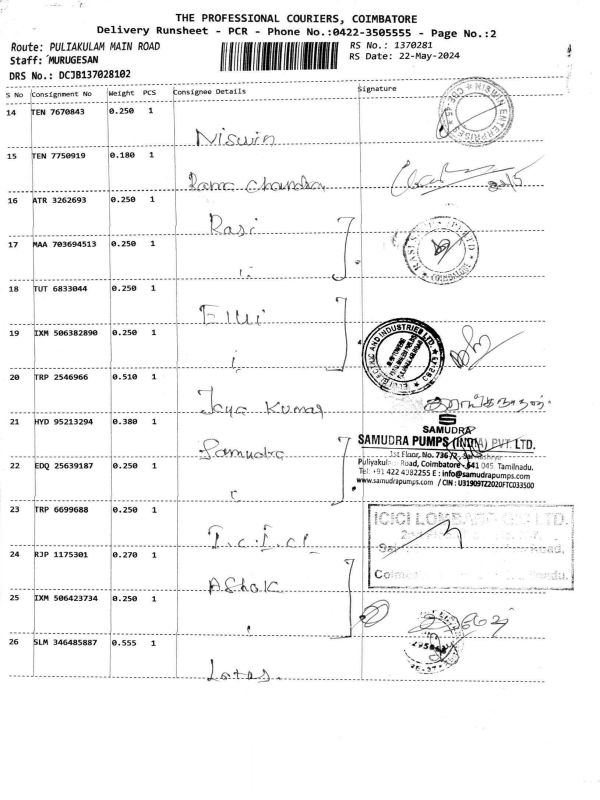 THE PROFESSIONAL COURIERS, COIMBATORE
Delivery Runsheet - PCR - Phone No.:0422-3505555 - Page No.:2
Route: PULIAKULAM MAIN ROAD
RS No.: 1370281
Staff: MURUGESAN
RS Date: 22-May-2024
DRS No.: DCJB137028102
S No Consignment No Weight PCS Consignee Details Signature
14 TEN 7670843 0.250 1
Niswin
15 TEN 7750919 0.180 1
Rama Chandra
16 ATR 3262693 0.250 1
Rasi
17 MAA 703694513 0.250 1
18 TUT 6833044 0.250 1
Ellui
19 IXM 506382890 0.250 1
20 TRP 2546966 0.510 1
Jaya Kumar
21 HYD 95213294 0.380 1
Samudra
SAMUDRA
SAMUDRA PUMPS (INDIA) PVT. LTD.
1st Floor, No. 736/2,
Puliyakul Road, Coimbatore - 641 045. Tamilnadu.
Tel: +91 422 4982255 E : info@samudrapumps.com
www.samudrapumps.com / CIN : U31909TZ2020FTC033500
22 EDQ 25639187 0.250 1
23 TRP 6699688 0.250 1
I.c.I.cI
ICICI LOMBARD LTD.
24 RJP 1175301 0.270 1
Ashok
25 IXM 506423734 0.250 1
26 SLM 346485887 0.555 1
Lotas.